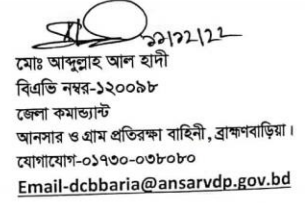 ২২/১২/২২
মোঃ আব্দুল্লাহ আল হাদী
বিএভি নম্বর-১২০০৯৮
জেলা কমান্ড্যান্ট
আনসার ও গ্রাম প্রতিরক্ষা বাহিনী, ব্রাহ্মণবাড়িয়া।
যোগাযোগ-০১৭৩০-০৩৮০৮০
Email-dcbbaria@ansarvdp.gov.bd